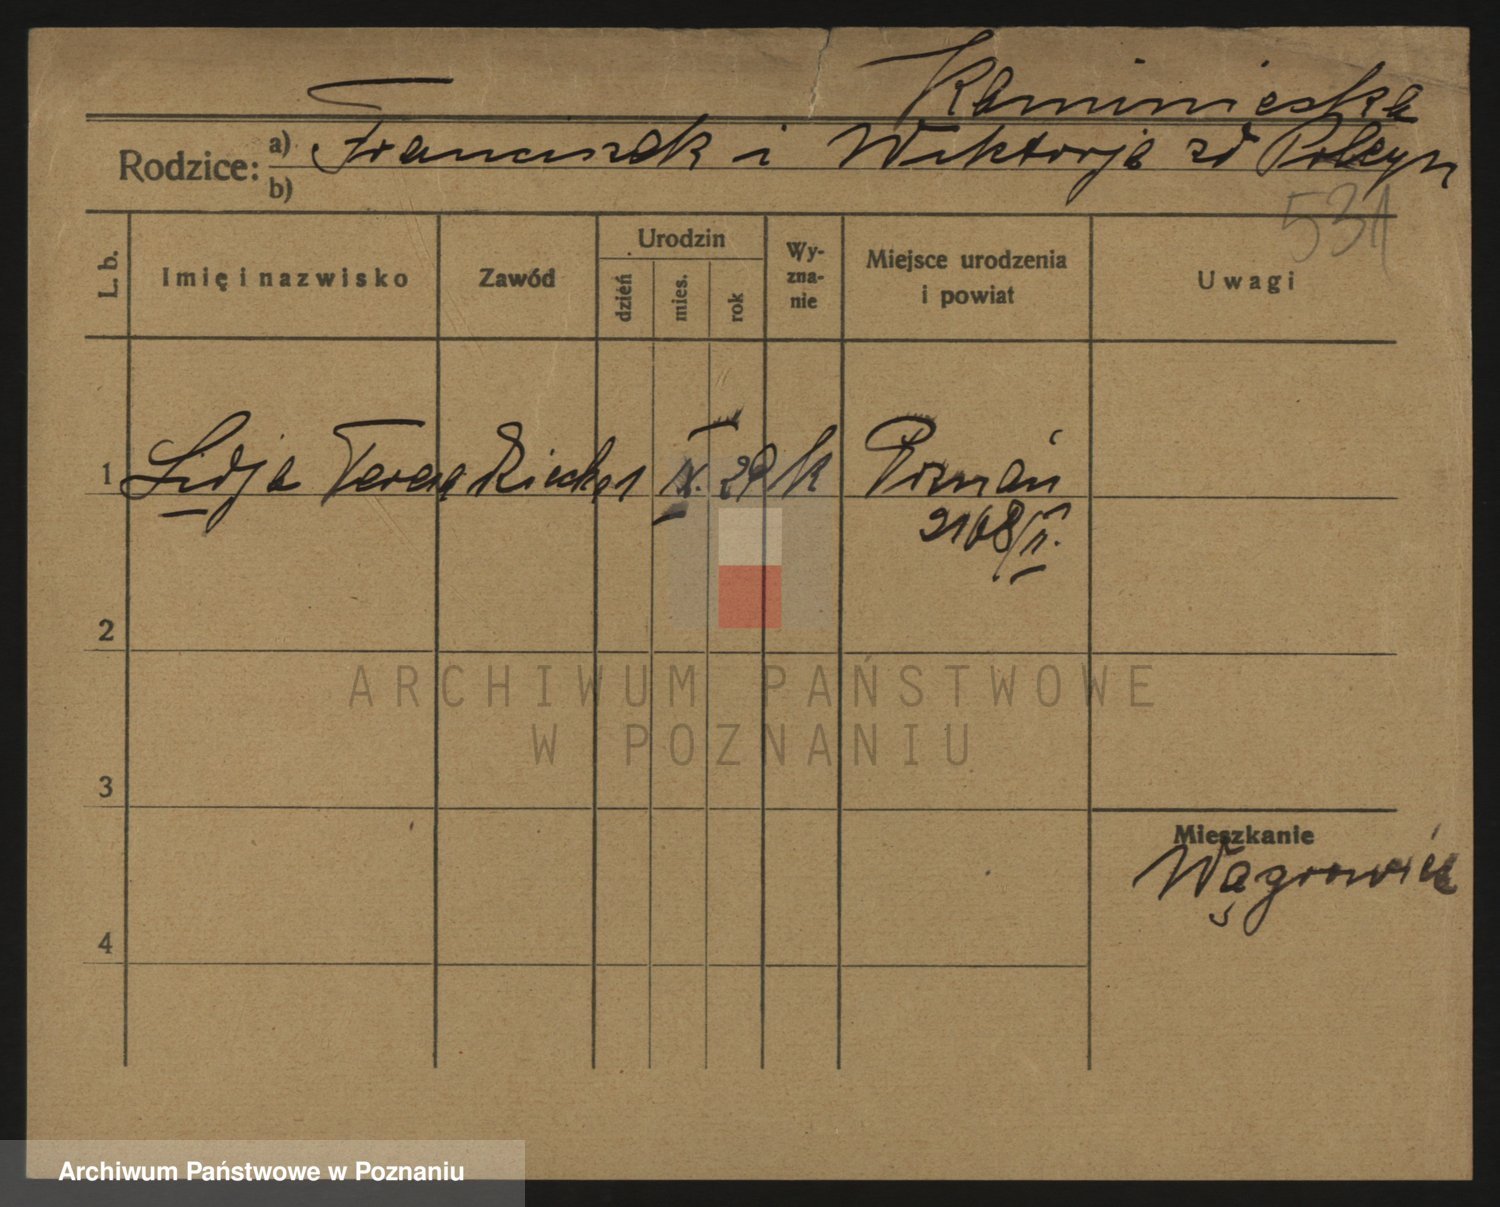 Kaminieska
Rodzice: a) Franciszek i Wiktorja zd Polcyn
b)
531
L. b.
Imię i nazwisko
Zawód
Urodzin
dzień
mies.
rok
Wy-
zna-
nie
Miejsce urodzenia
i powiat
Uwagi
1 Lidja Teresa dziecko 1 IX. 29 k Poznań
2168/II.
2
3
4
Mieszkanie
Wągrowiec
ARCHIWUM PAŃSTWOWE
W POZNANIU
Archiwum Państwowe w Poznaniu